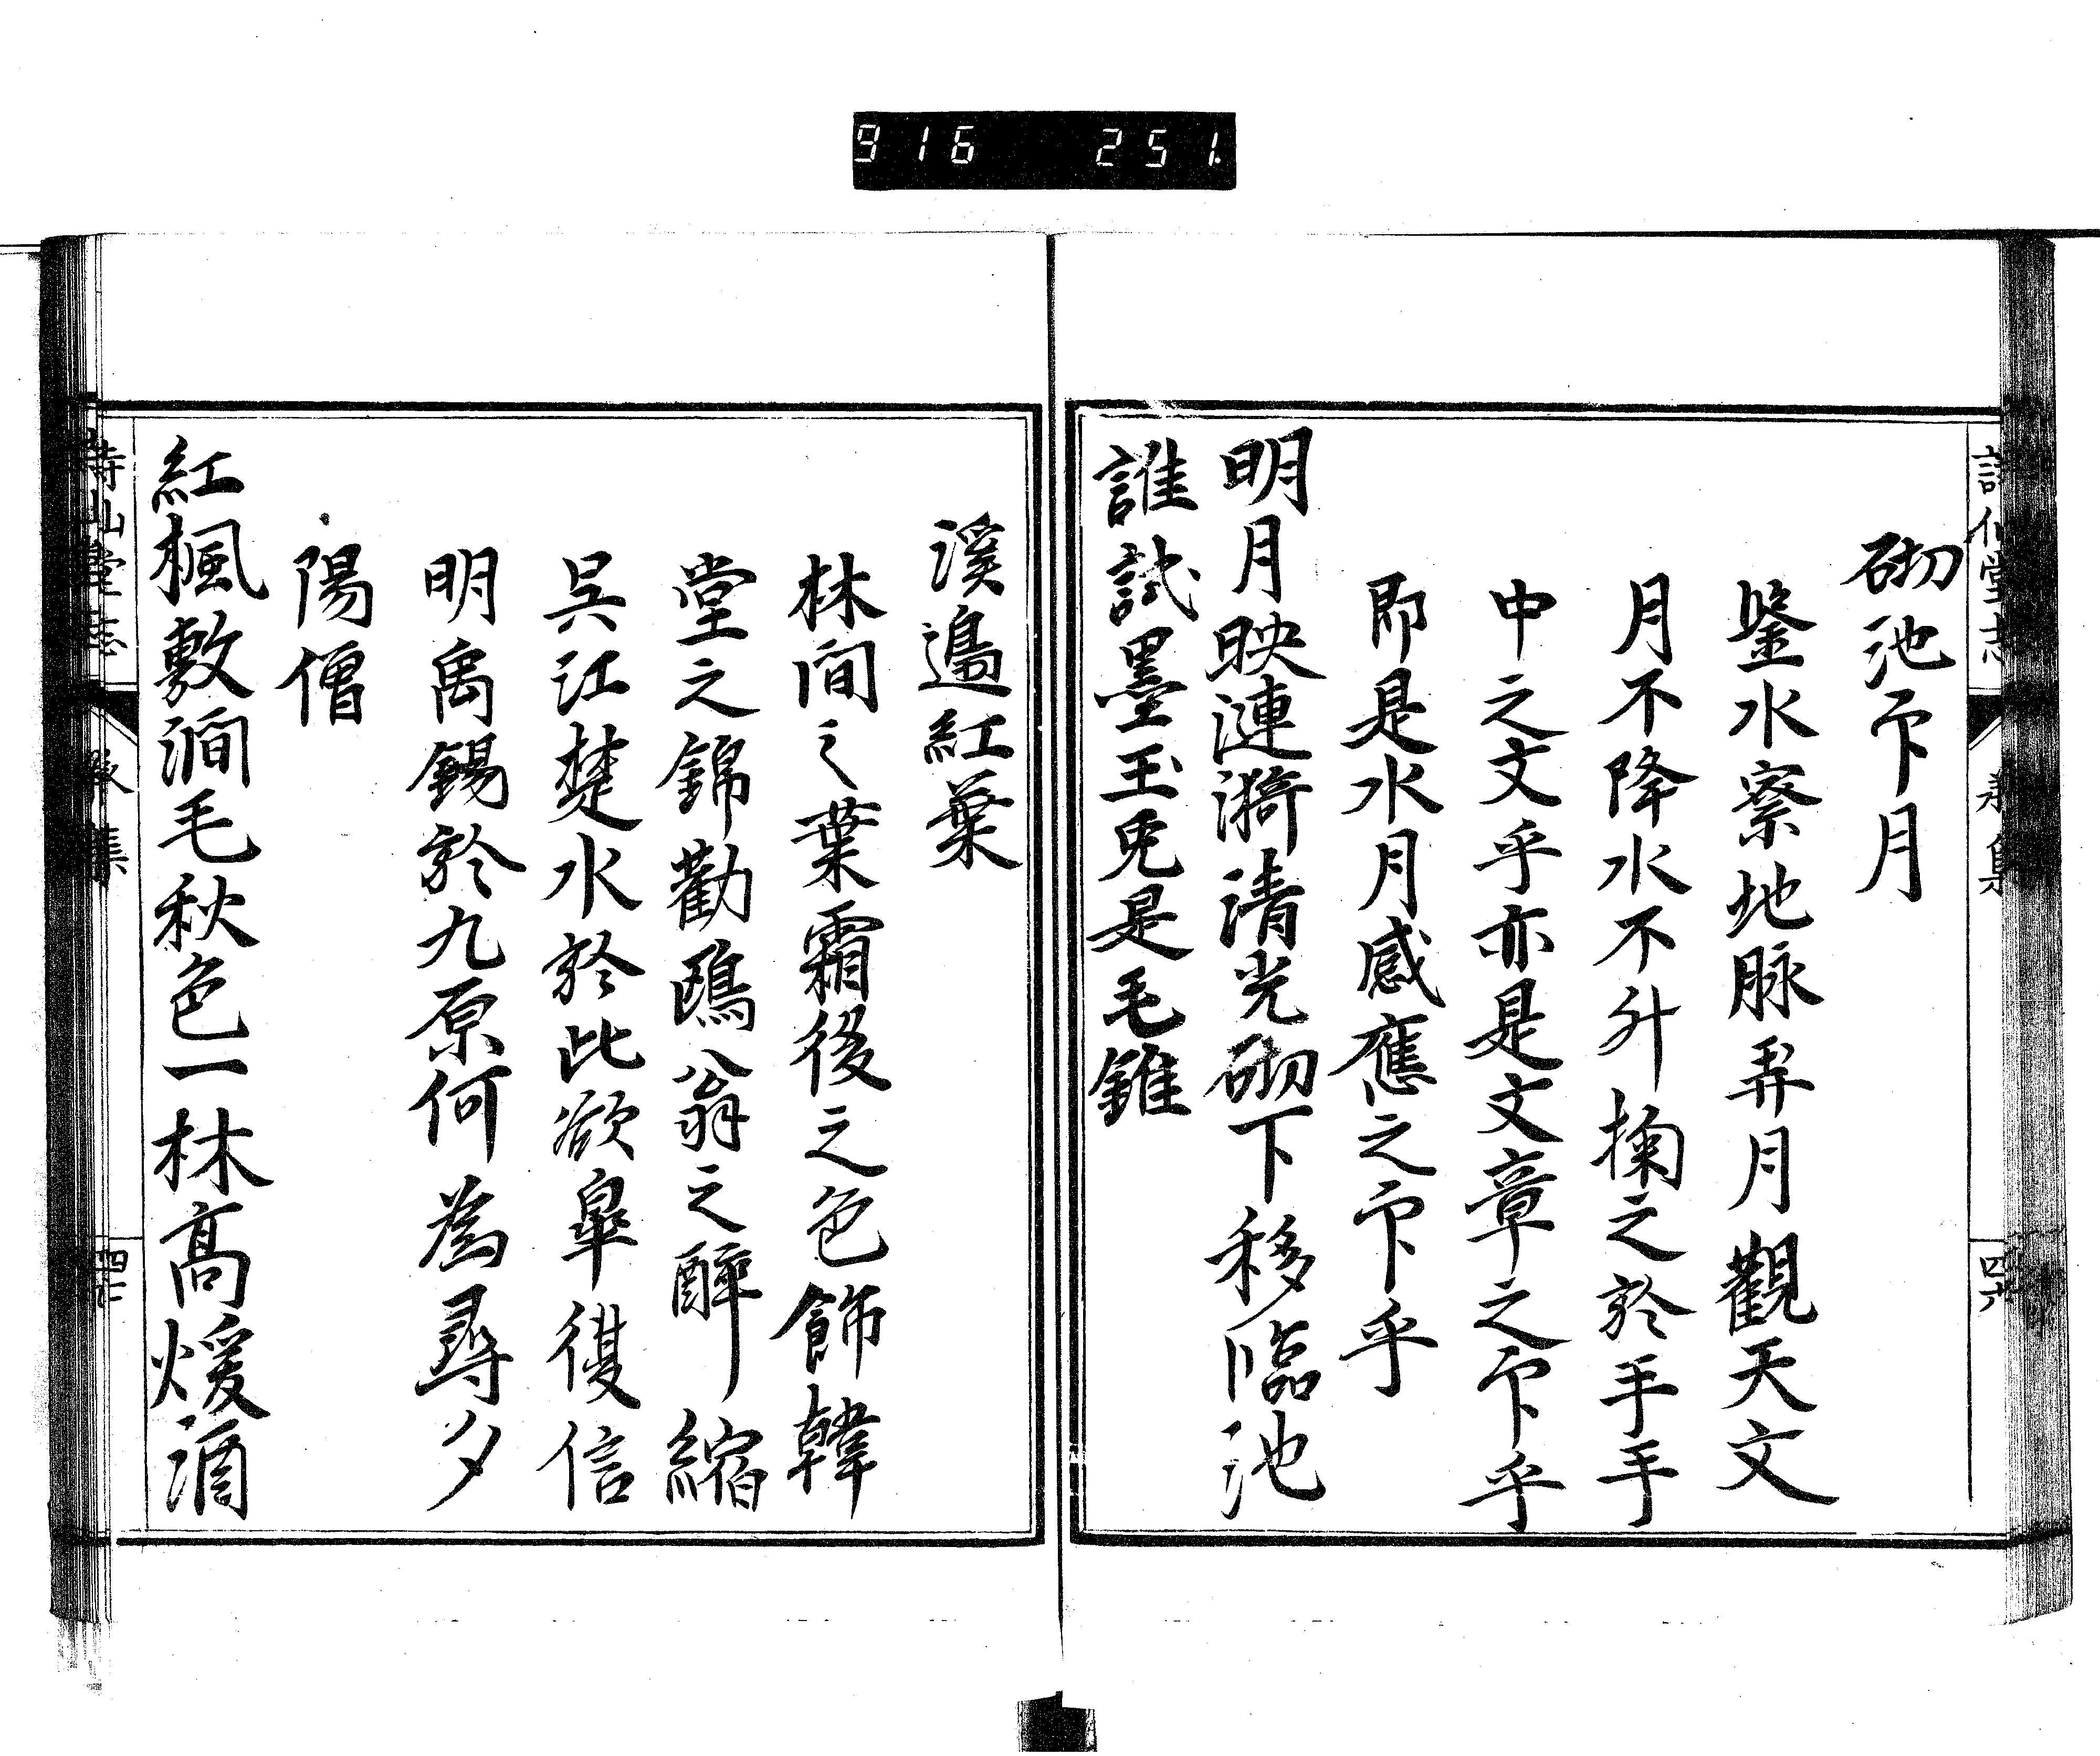 916 251.
砌池印月
鑒水察地脉弄月觀天文
月不降水不升掬之於手手
中之文乎亦是文章之印乎
即是水月感應之印乎
明月映漣漪清光砌下移臨池
誰試墨玉兎是毛錐
四六
溪邉紅葉
林間之葉霜後之色飾韓
堂之錦勸鴎翁之醉縮
呉江楚水於此欲皐復信
明禹錫於九原何為尋夕
陽僧
紅楓敷澗毛秋色一林髙煖酒
集
四七